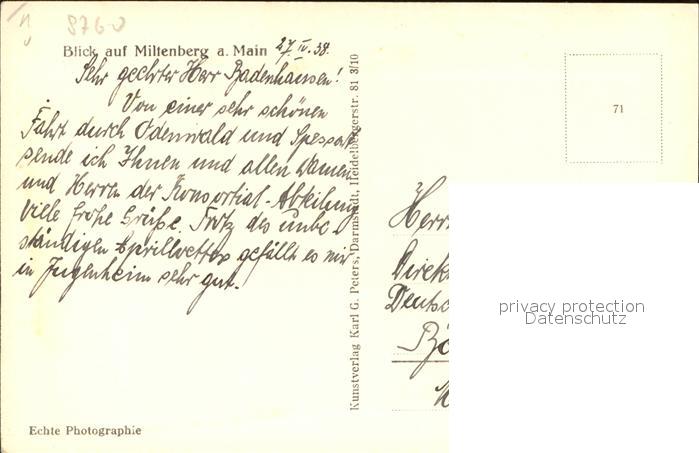 8760
Blick auf Miltenberg a. Main 27. IV. 38.
Sehr geehrter Herr Badenhausen!
Von einer sehr schönen
Fahrt durch Odenwald und Spessart
sende ich Ihnen und allen Damen
und Herren der Konsortial-Abteilung
viele frohe Grüße. Trotz des unbe-
ständigen Aprilwetters gefällt es mir
in Jugenheim sehr gut.
Echte Photographie
Kunstverlag Karl G. Peters, Darmstadt, Heidelbergerstr. 81 3/10
71
Herr
Direk
Deutsc
privacy protection
Datenschutz